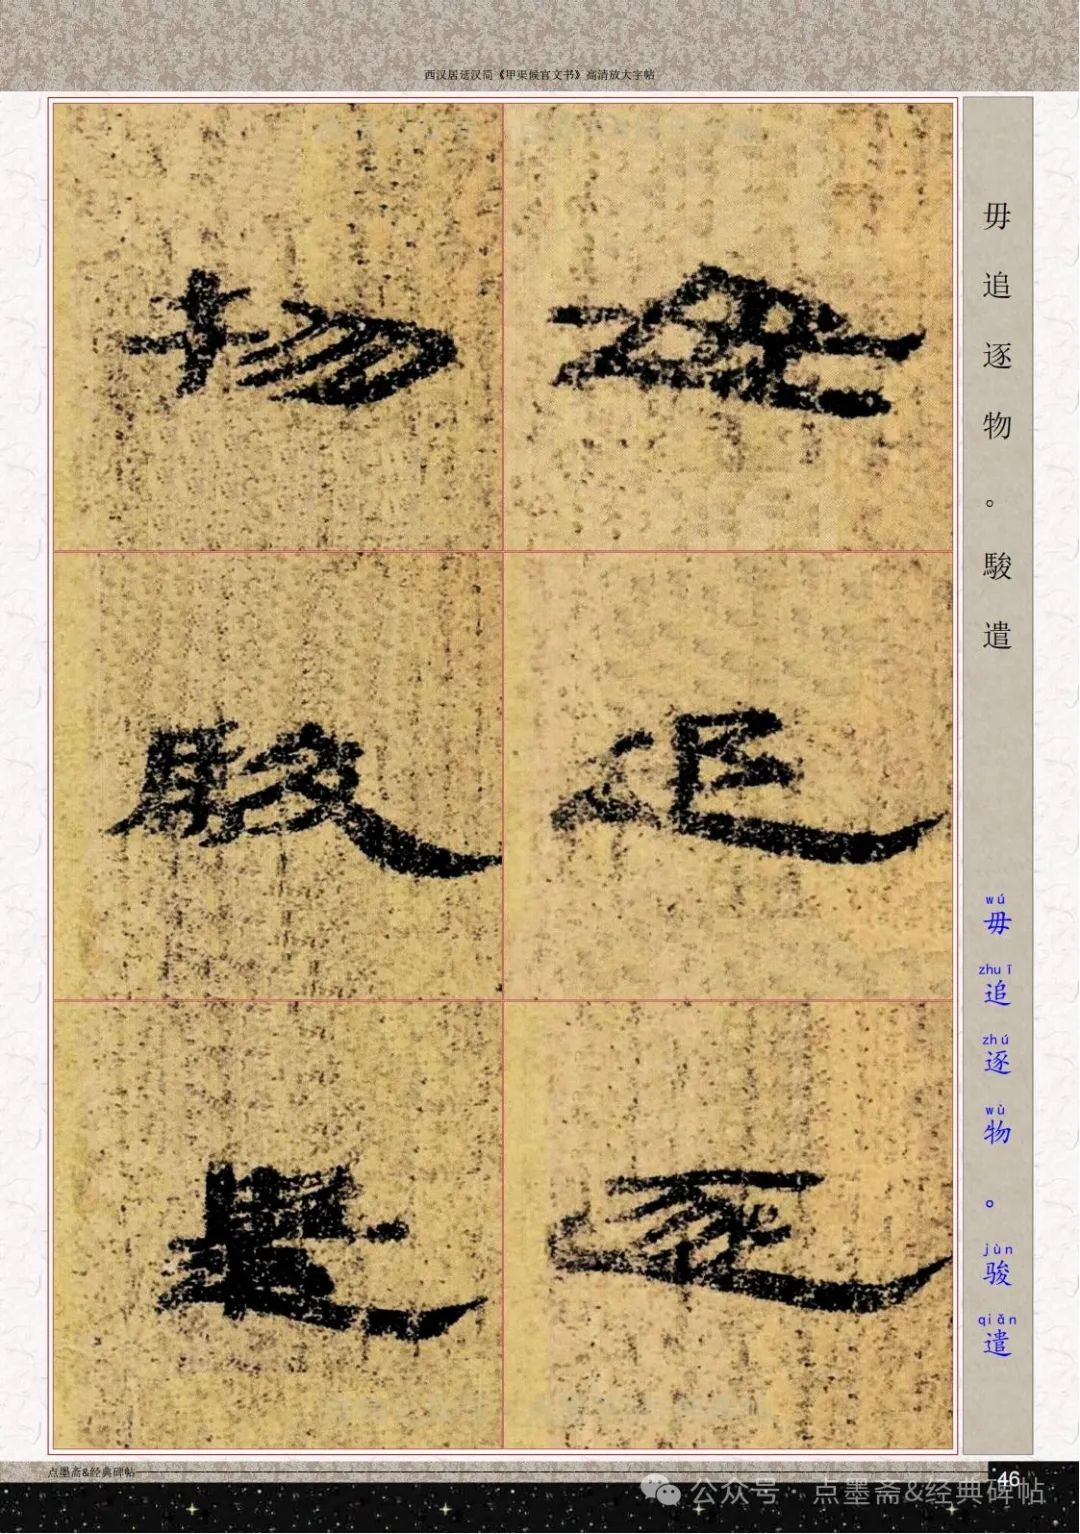 西汉居延汉简《甲渠候官文书》高清放大字帖
毋追逐
物駿遣
毋追逐物。駿遣
wú zhuī zhú wù jùn qiǎn
毋追逐物。骏遣
点墨斋&经典碑帖
46
公众号·点墨斋&经典碑帖